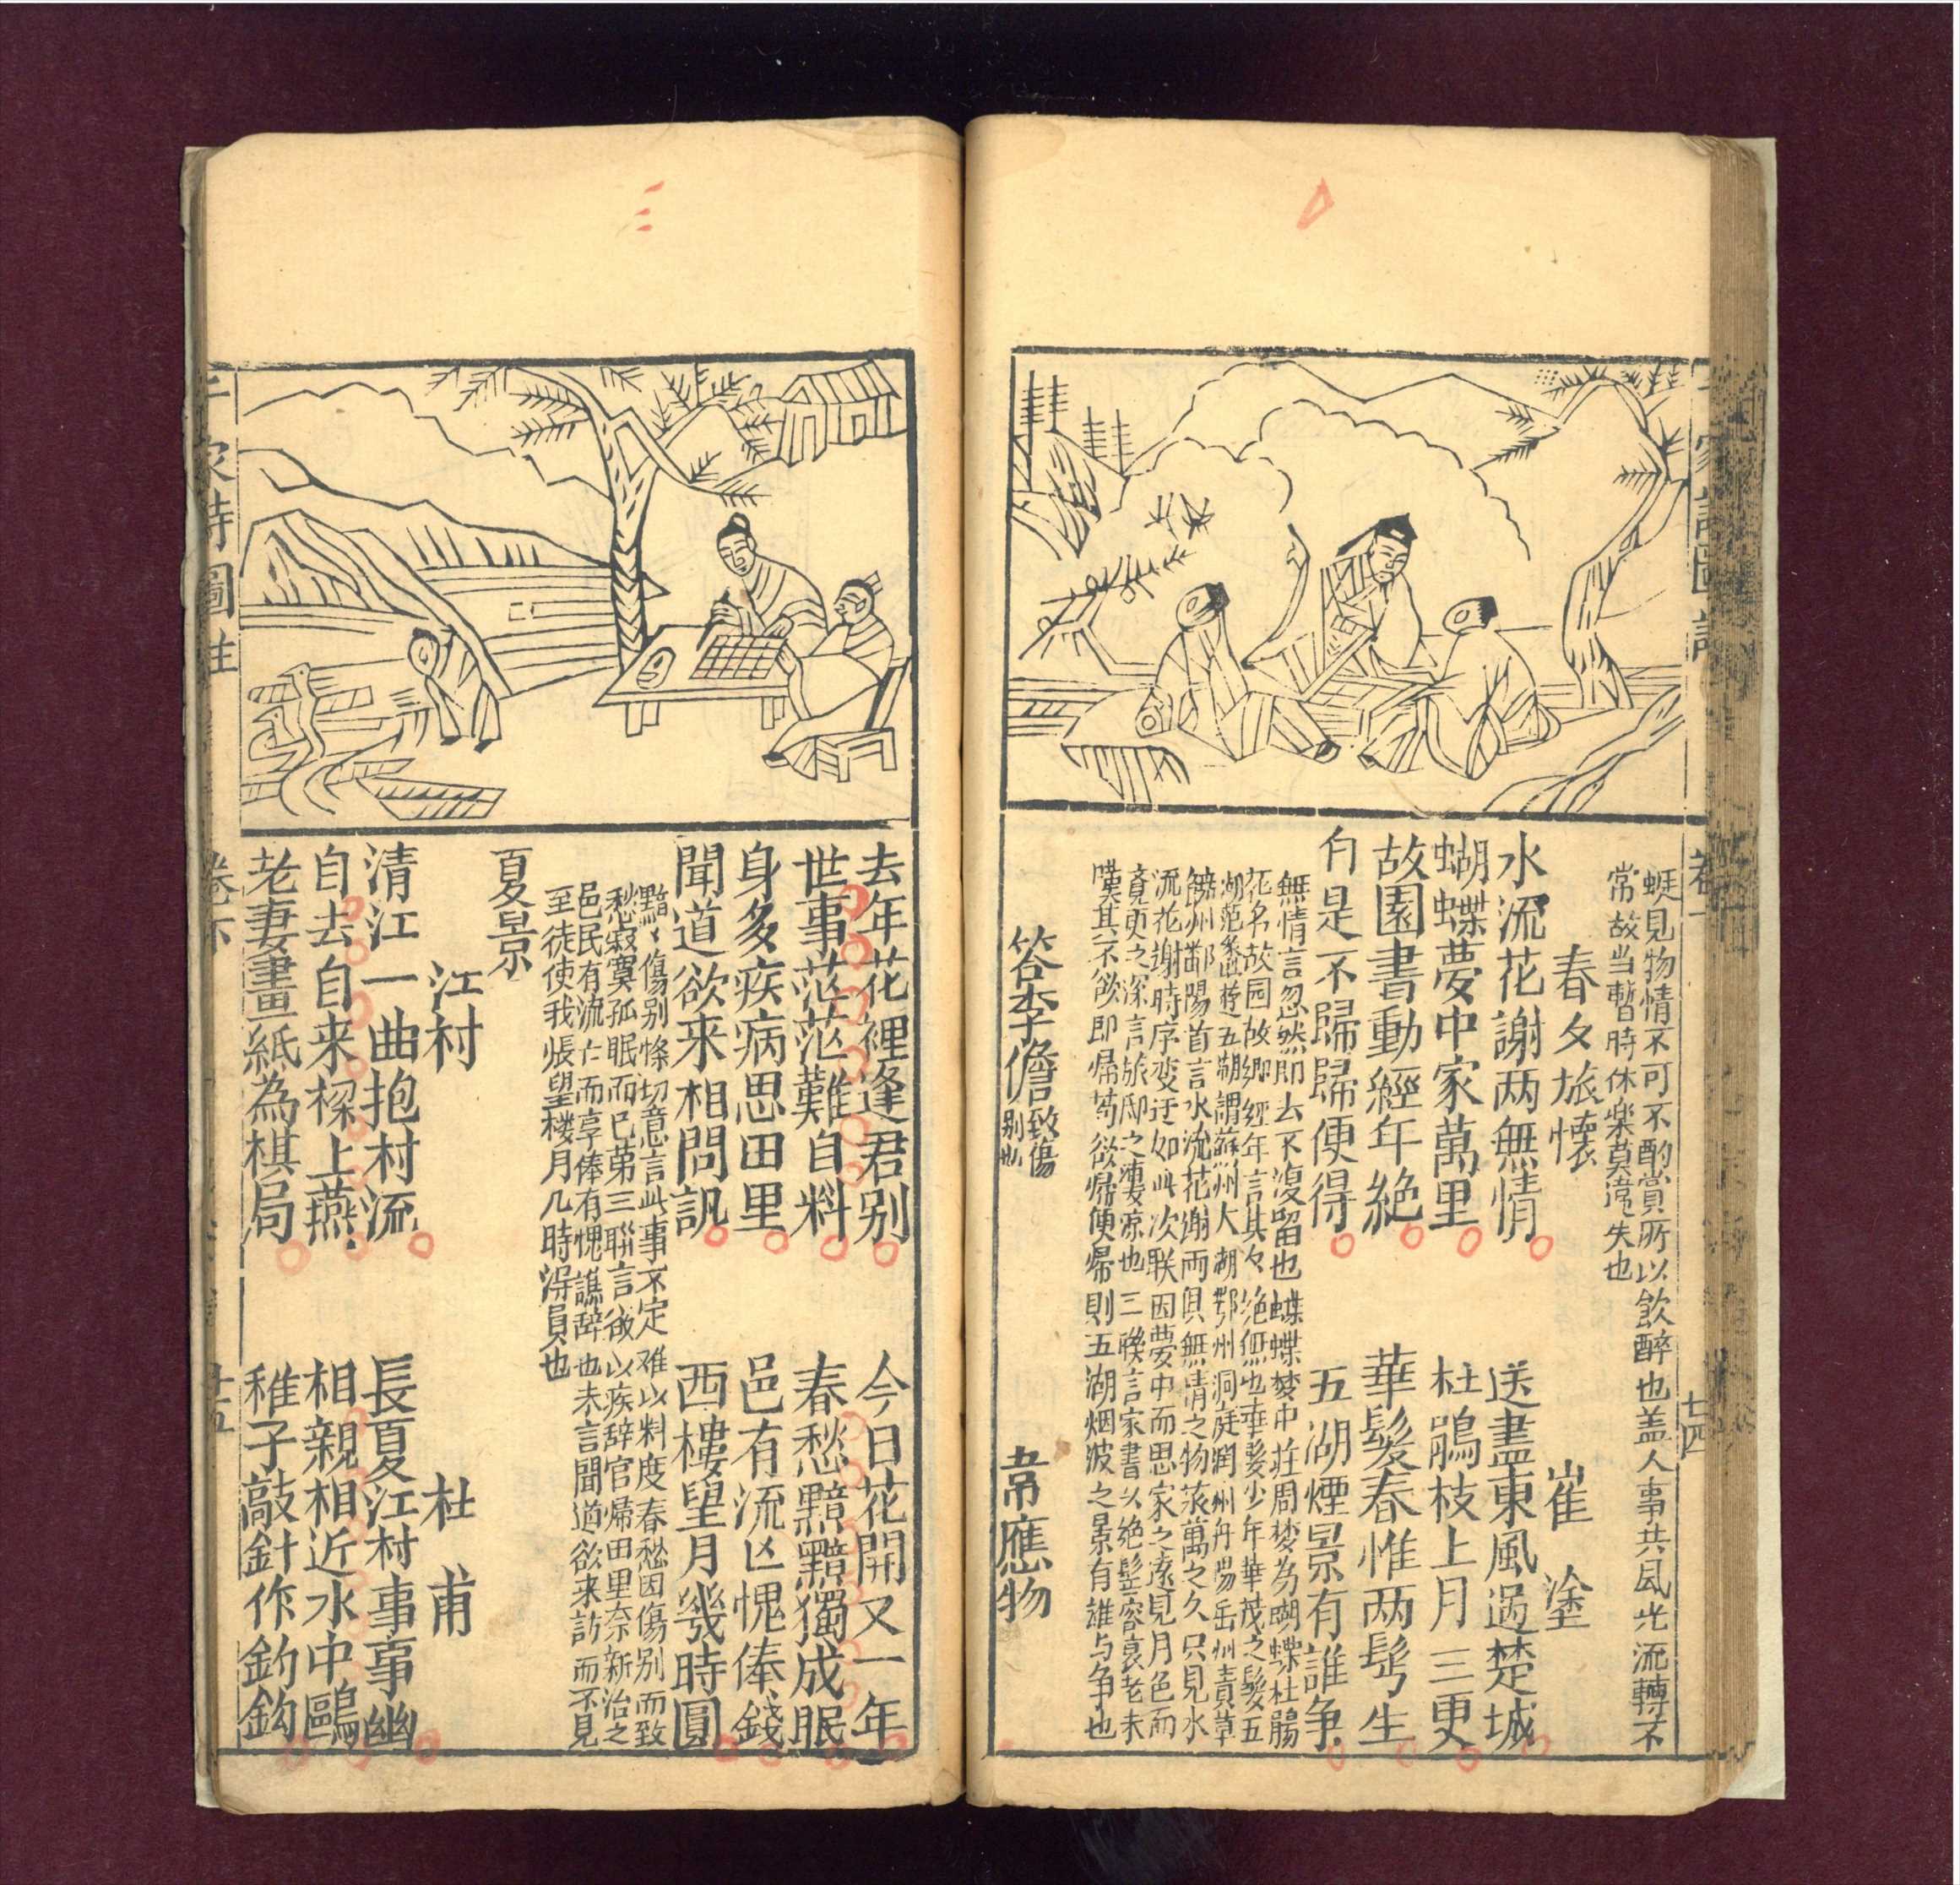 蜓見物情不可不酌賞所以飲醉也盖人事共風光流轉不
常故当暫時休楽莫違失也
春夕旅懷　崔塗
水流花謝两無情　送盡東風過楚城
蝴蝶夢中家萬里　杜鵑枝上月三更
故園書動經年絶　華髮春惟两鬂生
自是不歸歸便得　五湖煙景有誰争
無情言忽然即去不復留也蝴蝶梦中荘周梦為蝴蝶杜鵑
花名故园故郷經年言其久絶無也華髮少年華茂之髮五
湖范蠡遊五湖謂蘇州大湖鄂州洞庭潤州丹陽岳州青草
饒州鄱陽首言水流花謝两俱無情之物蒸萬之久只見水
流花謝時序变迁如此次联因夢中而思家之遠見月色而
竟更之深言旅邸之凄凉也三聨言家書以绝髩容衰老未
嘆其不欲即帰苟欲帰便帰則五湖烟波之景有誰与争也
答李儋致傷别也　韋應物
去年花裡逢君别　今日花開又一年
世事茫茫難自料　春愁黯黯獨成眠
身多疾病思田里　邑有流亡愧俸錢
聞道欲来相問訊　西樓望月幾時圓
黯黯傷别慘切意言此事不定难以料度春愁因傷别而致
愁寂寞孤眠而已第三聨言欲以疾辞官帰田里奈新治之
邑民有流亡而享俸有愧譙辞也末言聞道欲来訪而不見
至徒使我悵望楼月几時得員也
夏景
江村　杜甫
清江一曲抱村流　長夏江村事事幽
自去自来樑上燕　相親相近水中鷗
老妻畫紙為棋局　稚子敲針作釣鈎
千家詩圖註　卷六　廿五